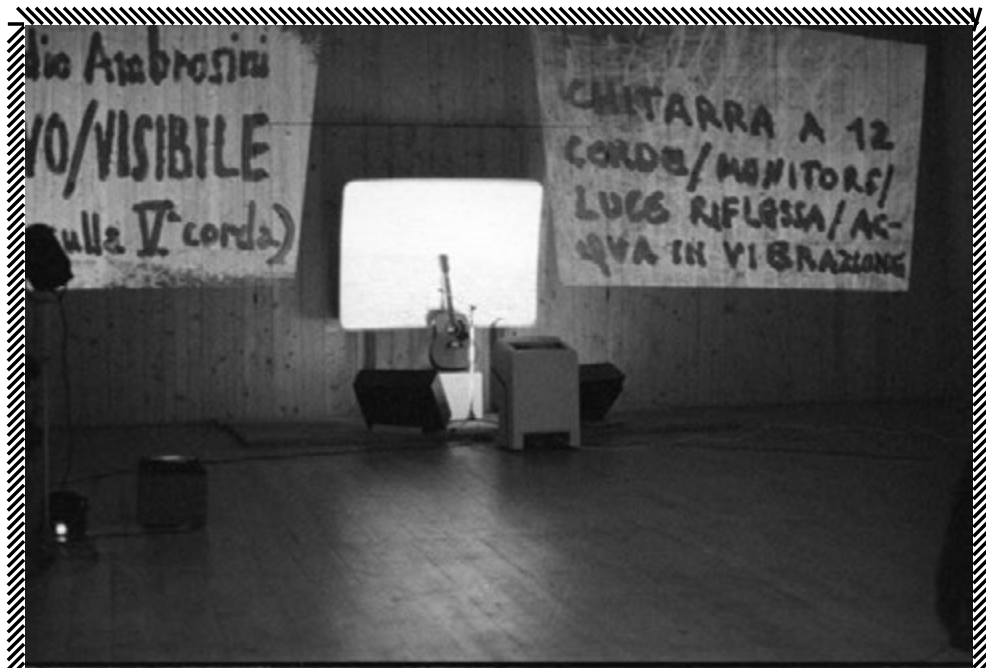 dio Ambrosini
VO/VISIBILE
sulla Vª corda)
CHITARRA A 12
CORDE/MONITORS/
LUCE RIFLESSA/AC-
QUA IN VIBRAZIONE